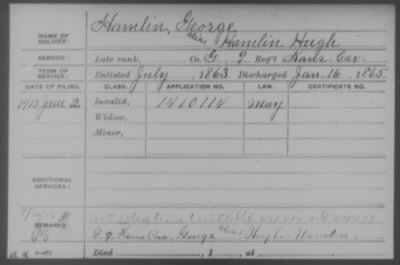 Hamlin, George
NAME OF SOLDIER:
alias Hamlin Hugh
SERVICE:
Late rank, Co. G, 9 Reg't Kans. Cav.
TERM OF SERVICE:
Enlisted July, 1863 Discharged Jan. 16, 1865
DATE OF FILING. CLASS. APPLICATION NO. LAW. CERTIFICATE NO.
1913 June 2 Invalid, 1410114 May
Widow,
Minor,
ADDITIONAL SERVICES:
REMARKS:
G. 9 Kans. Cav. George alias Hugh Hamlin
Died, 1, at